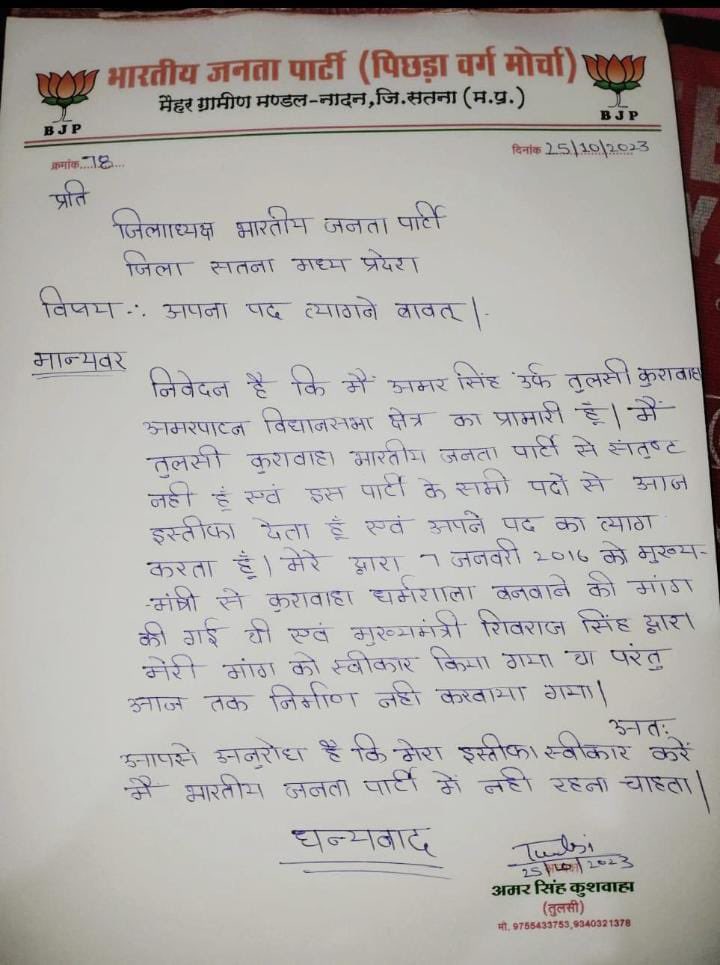 भारतीय जनता पार्टी (पिछड़ा वर्ग मोर्चा)
मैहर ग्रामीण मण्डल-नादन, जि.सतना (म.प्र.)
BJP
BJP
क्रमांक....78....
दिनांक 25/10/2023
प्रति
जिलाध्यक्ष भारतीय जनता पार्टी
जिला सतना मध्य प्रदेश
विषय -: अपना पद त्यागने बावत् |
मान्यवर
निवेदन है कि मैं अमर सिंह उर्फ तुलसी कुशवाह
अमरपाटन विधानसभा क्षेत्र का प्रभारी हूँ | मैं
तुलसी कुशवाहा भारतीय जनता पार्टी से संतुष्ट
नही हूं एवं इस पार्टी के सभी पदों से आज
इस्तीफा देता हूँ एवं अपने पद का त्याग
करता हूँ | मेरे द्वारा 7 जनवरी 2016 को मुख्य-
-मंत्री से कुशवाहा धर्मशाला बनवाने की मांग
की गई थी एवं मुख्यमंत्री शिवराज सिंह द्वारा
मेरी मांग को स्वीकार किया गया था परंतु
आज तक निर्माण नही करवाया गया |
अत:
आपसे अनुरोध है कि मेरा इस्तीफा स्वीकार करें
मैं भारतीय जनता पार्टी में नही रहना चाहता |
धन्यवाद
Tulsi
25/10/2023
अमर सिंह कुशवाहा
(तुलसी)
मो. 9755433753,9340321378